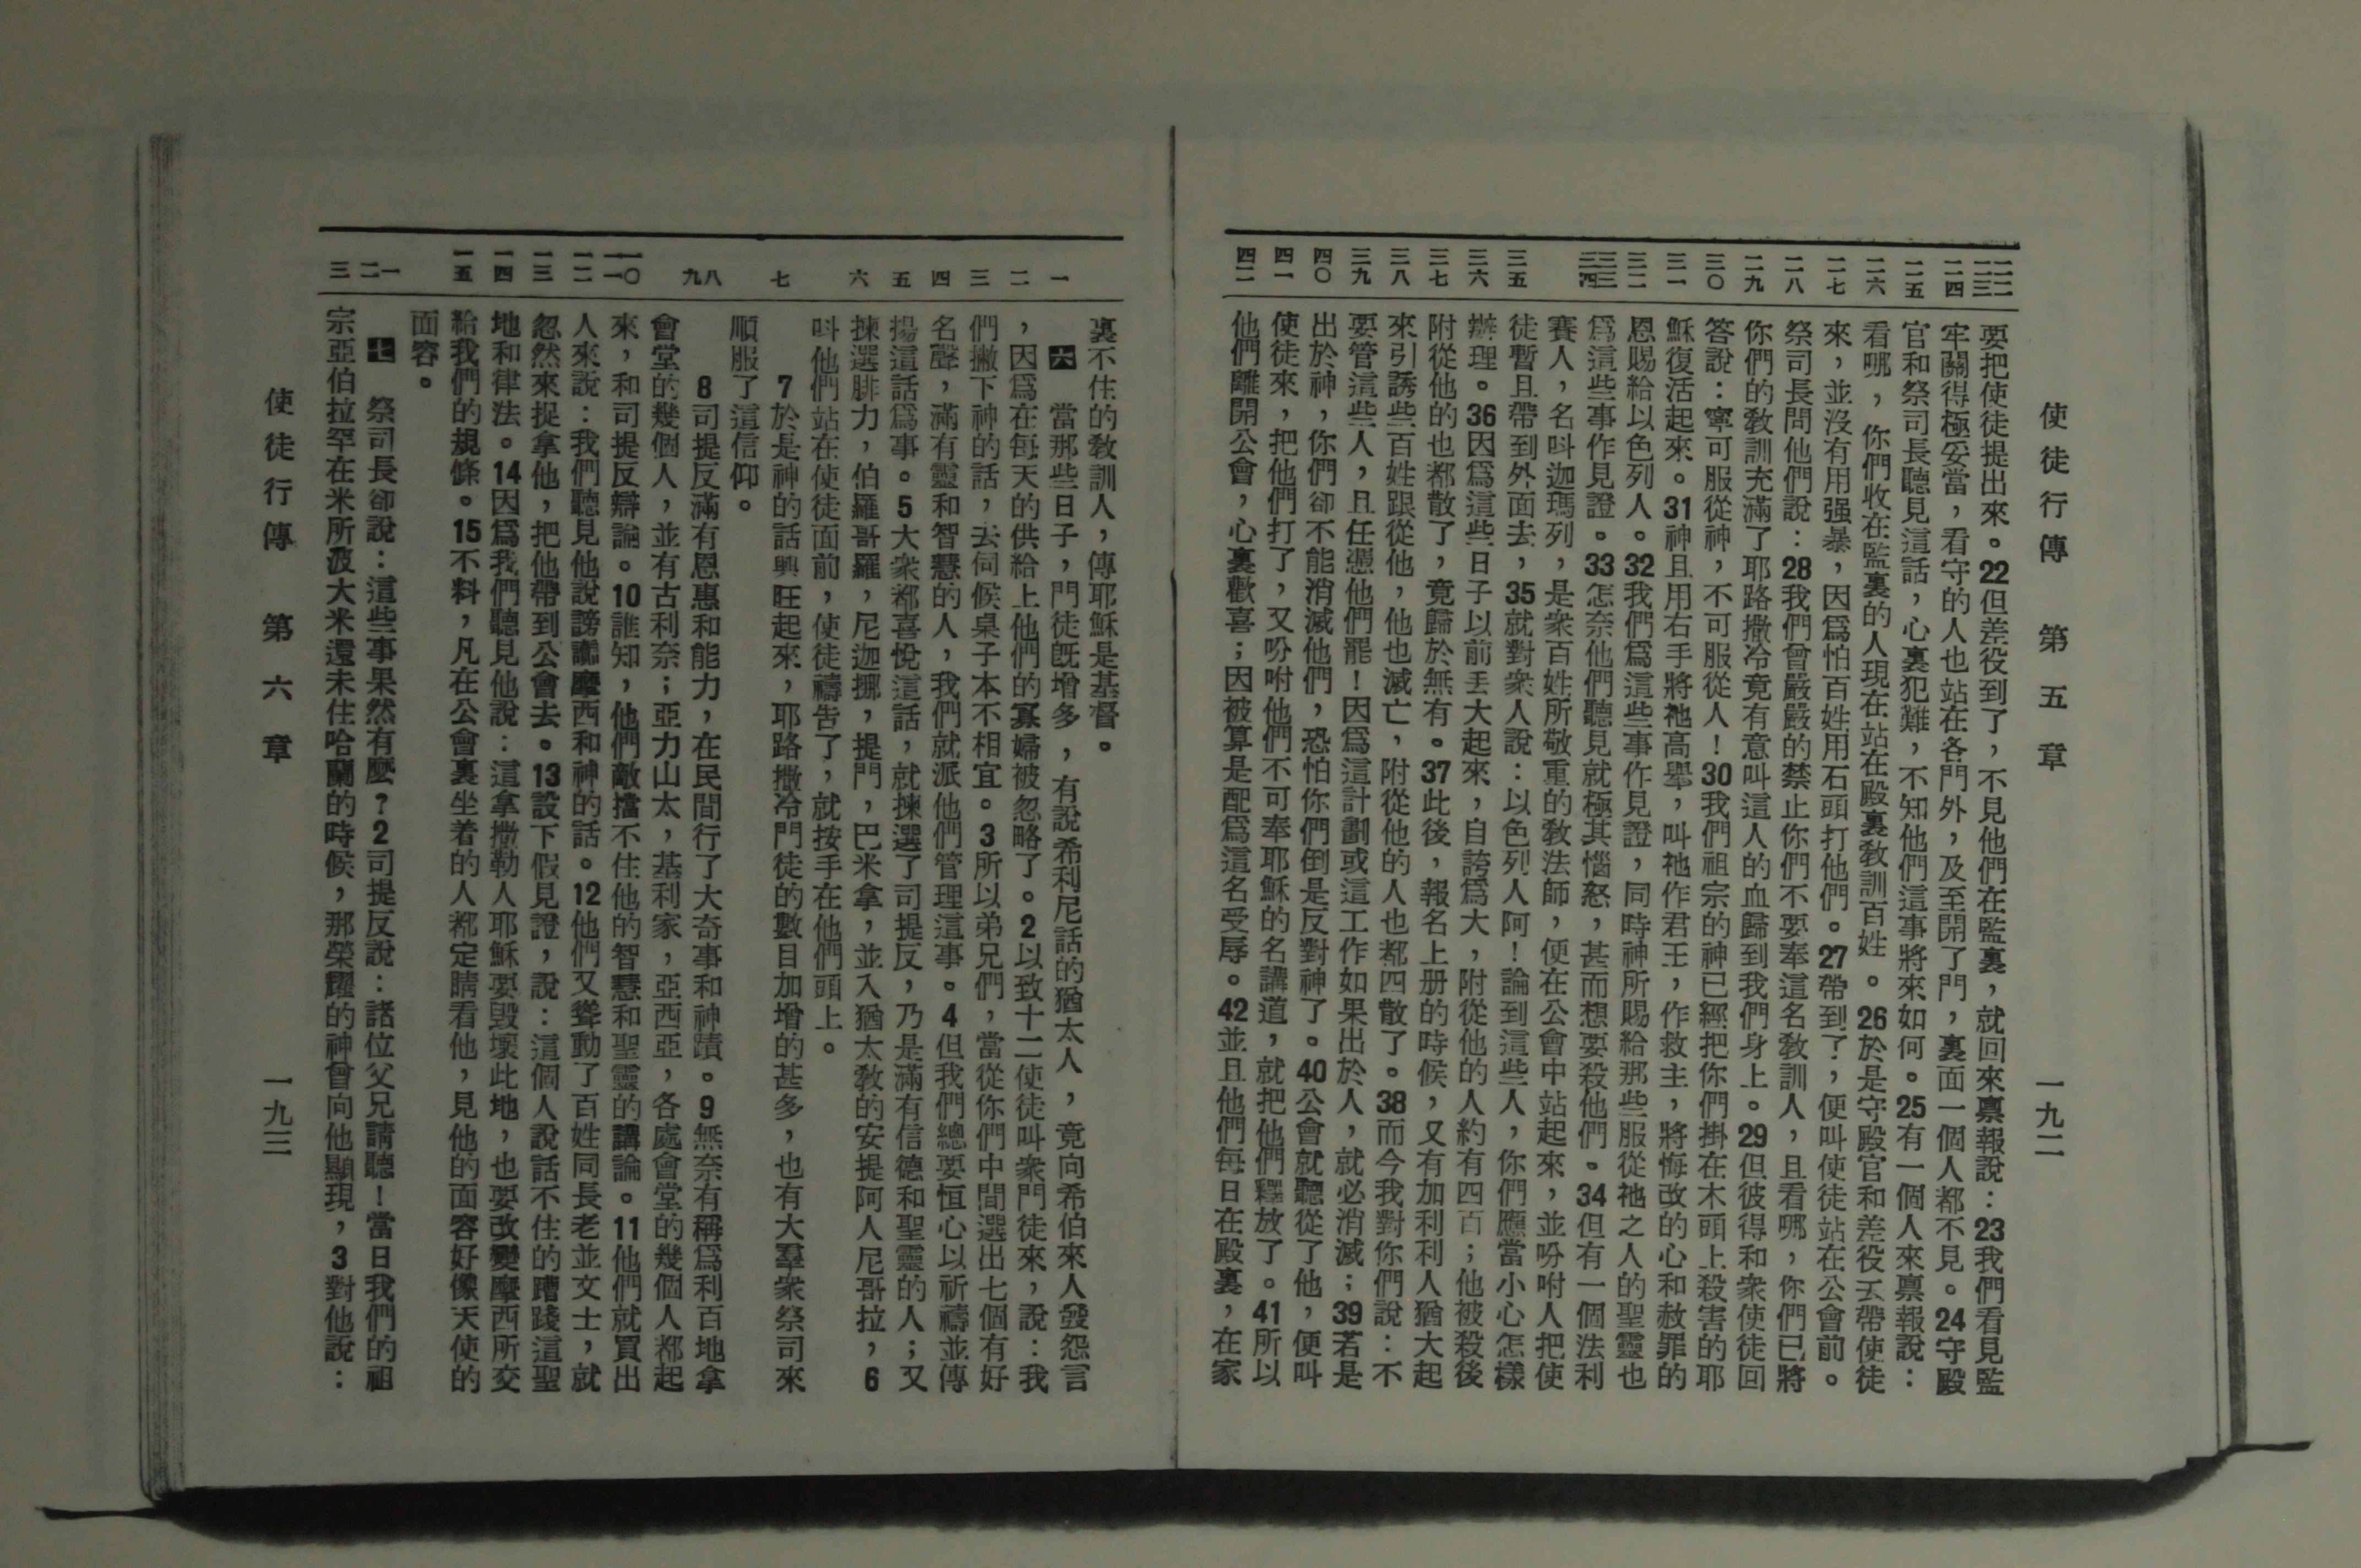 使徒行傳 第五章 一九二
二一
二二
二三
二四
二五
二六
二七
二八
二九
三〇
三一
三二
三三
三四
三五
三六
三七
三八
三九
四〇
四一
四二
要把使徒提出來。22但差役到了，不見他們在監裏，就回來禀報說：23我們看見監
牢關得極妥當，看守的人也站在各門外，及至開了門，裏面一個人都不見。24守殿
官和祭司長聽見這話，心裏犯難，不知他們這事將來如何。25有一個人來禀報說：
看哪，你們收在監裏的人現在站在殿裏敎訓百姓。26於是守殿官和差役去帶使徒
來，並沒有用强暴，因爲怕百姓用石頭打他們。27帶到了，便叫使徒站在公會前。
祭司長問他們說：28我們曾嚴嚴的禁止你們不要奉這名敎訓人，且看哪，你們已將
你們的敎訓充滿了耶路撒冷竟有意叫這人的血歸到我們身上。29但彼得和衆使徒回
答說：寧可服從神，不可服從人！30我們祖宗的神已經把你們掛在木頭上殺害的耶
穌復活起來。31神且用右手將祂高舉，叫祂作君王，作救主，將悔改的心和赦罪的
恩賜給以色列人。32我們爲這些事作見證，同時神所賜給那些服從祂之人的聖靈也
爲這些事作見證。33怎奈他們聽見就極其惱怒，甚而想要殺他們。34但有一個法利
賽人，名叫迦瑪列，是衆百姓所敬重的敎法師，便在公會中站起來，並吩咐人把使
徒暫且帶到外面去，35就對衆人說：以色列人阿！論到這些人，你們應當小心怎樣
辦理。36因爲這些日子以前丢大起來，自誇爲大，附從他的人約有四百；他被殺後
附從他的也都散了，竟歸於無有。37此後，報名上册的時候，又有加利利人猶大起
來引誘些百姓跟從他，他也滅亡，附從他的人也都四散了。38而今我對你們說：不
要管這些人，且任憑他們罷！因爲這計劃或這工作如果出於人，就必消滅；39若是
出於神，你們卻不能消滅他們，恐怕你們倒是反對神了。40公會就聽從了他，便叫
使徒來，把他們打了，又吩咐他們不可奉耶穌的名講道，就把他們釋放了。41所以
他們離開公會，心裏歡喜；因被算是配爲這名受辱。42並且他們每日在殿裏，在家
一
二
三
四
五
六
七
八
九
一〇
一一
一二
一三
一四
一五
一
二
三
裏不住的敎訓人，傳耶穌是基督。
六 當那些日子，門徒旣增多，有說希利尼話的猶太人，竟向希伯來人發怨言
，因爲在每天的供給上他們的寡婦被忽略了。2以致十二使徒叫衆門徒來，說：我
們撇下神的話，去伺候桌子本不相宜。3所以弟兄們，當從你們中間選出七個有好
名聲，滿有靈和智慧的人，我們就派他們管理這事。4但我們總要恒心以祈禱並傳
揚這話爲事。5大衆都喜悅這話，就揀選了司提反，乃是滿有信德和聖靈的人；又
揀選腓力，伯羅哥羅，尼迦挪，提門，巴米拿，並入猶太敎的安提阿人尼哥拉，6
叫他們站在使徒面前，使徒禱告了，就按手在他們頭上。
7於是神的話興旺起來，耶路撒冷門徒的數目加增的甚多，也有大羣衆祭司來
順服了這信仰。
8司提反滿有恩惠和能力，在民間行了大奇事和神蹟。9無奈有稱爲利百地拿
會堂的幾個人，並有古利奈；亞力山太，基利家，亞西亞，各處會堂的幾個人都起
來，和司提反辯論。10誰知，他們敵擋不住他的智慧和聖靈的講論。11他們就買出
人來說：我們聽見他說謗讟摩西和神的話。12他們又聳動了百姓同長老並文士，就
忽然來捉拿他，把他帶到公會去。13設下假見證，說：這個人說話不住的蹧踐這聖
地和律法。14因爲我們聽見他說：這拿撒勒人耶穌要毀壞此地，也要改變摩西所交
給我們的規條。15不料，凡在公會裏坐着的人都定睛看他，見他的面容好像天使的
面容。
七 祭司長卻說：這些事果然有麼？2司提反說：諸位父兄請聽！當日我們的祖
宗亞伯拉罕在米所波大米還未住哈蘭的時候，那榮耀的神曾向他顯現，3對他說：
使徒行傳 第六章 一九三